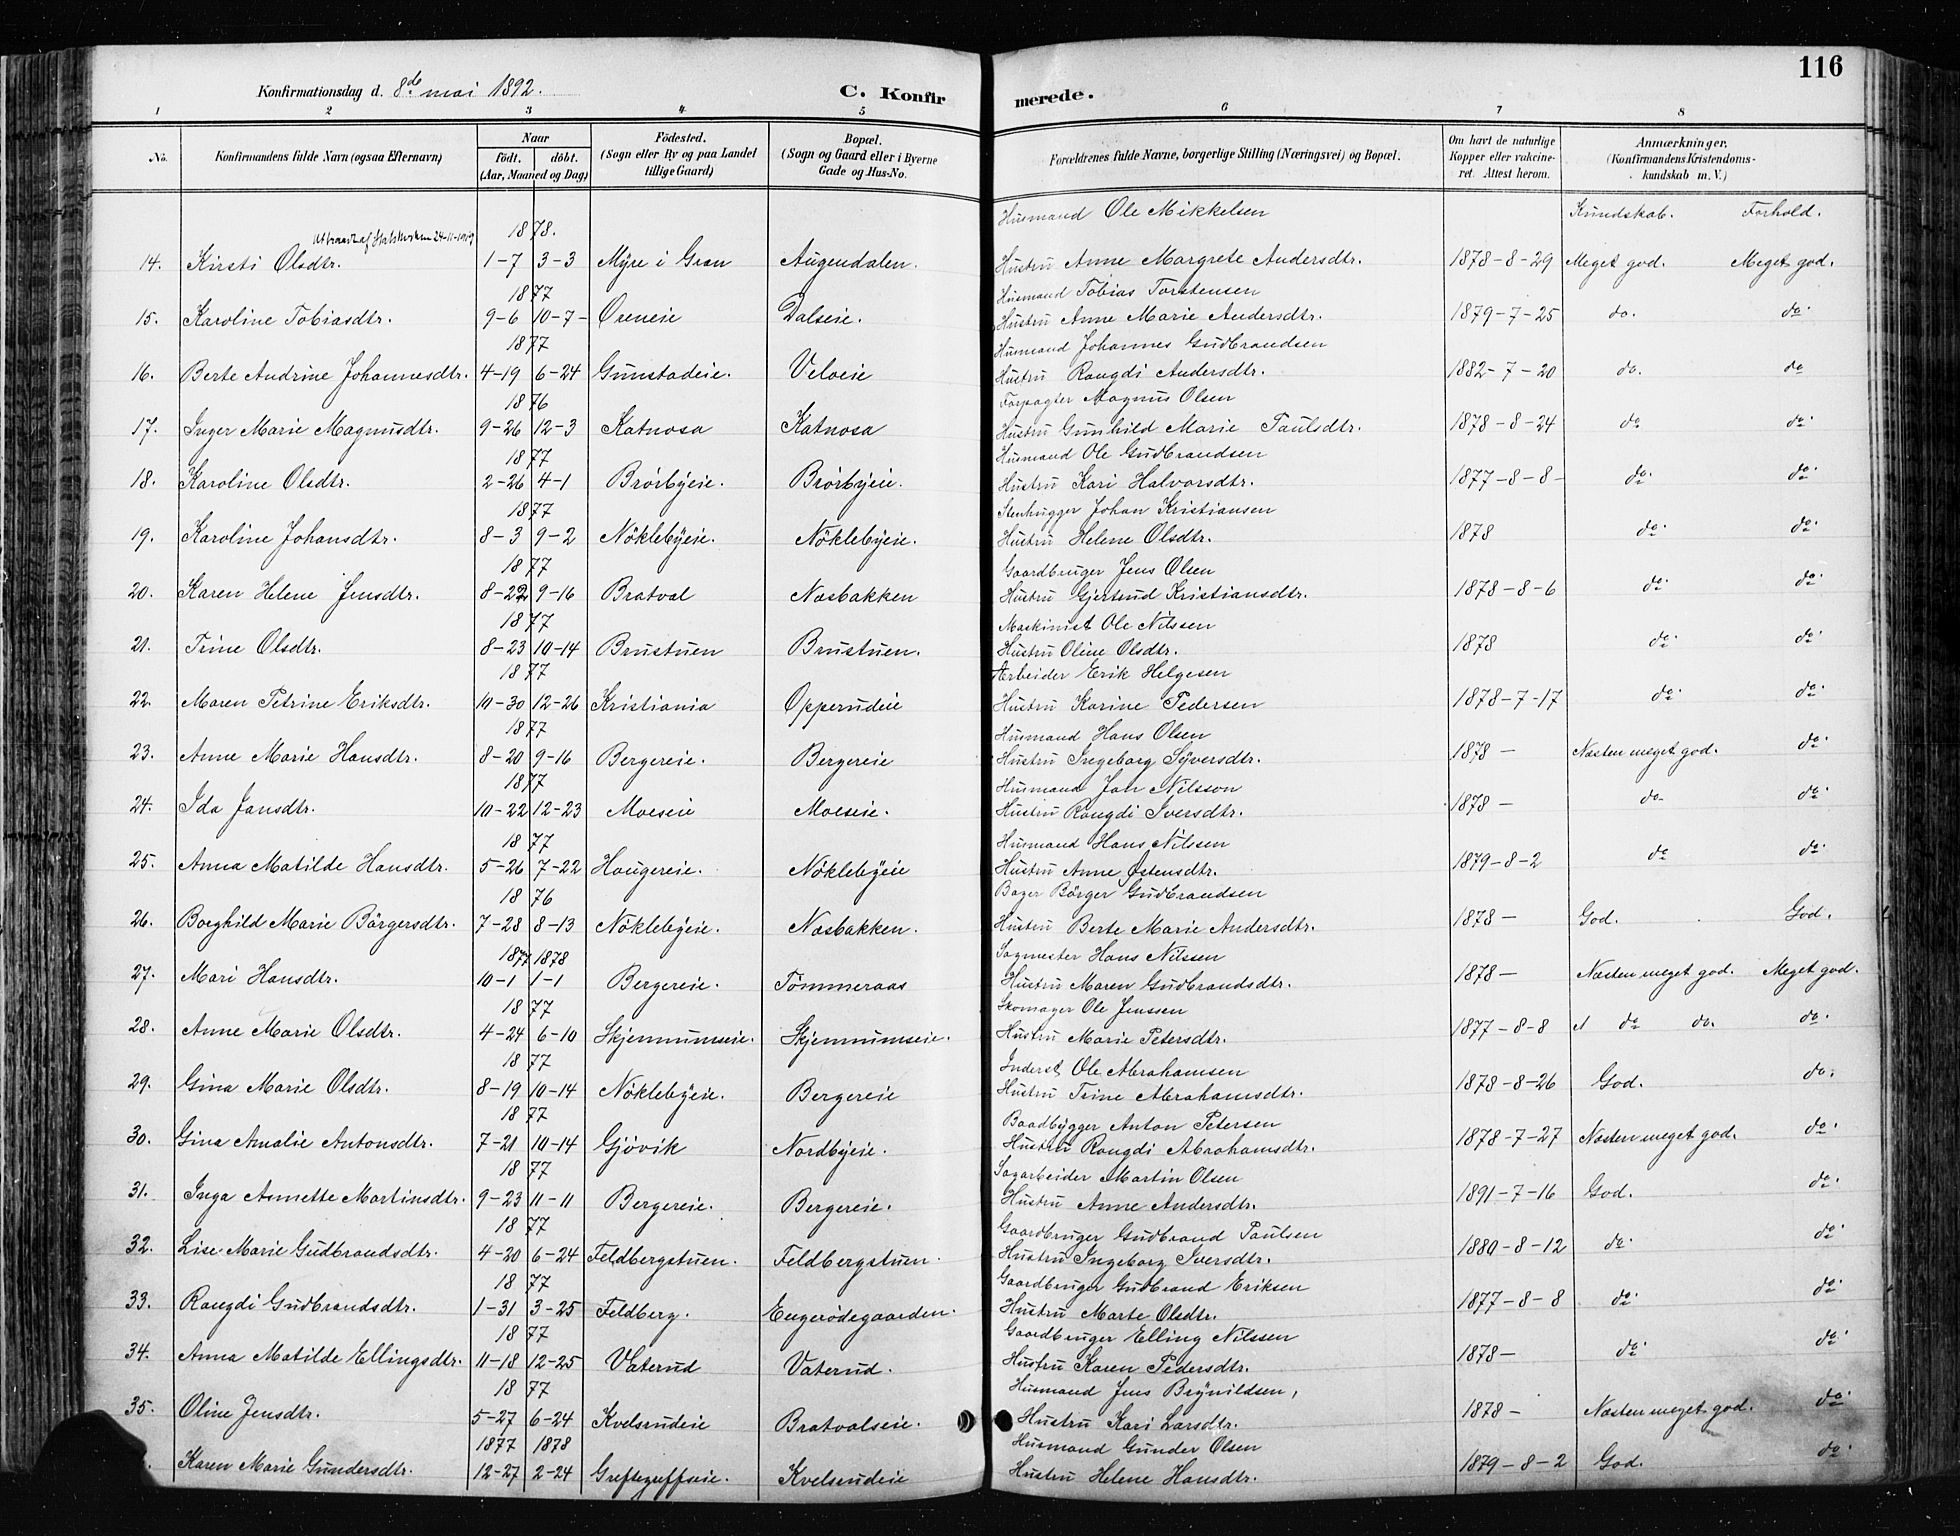 116
Konfirmationsdag d. 8de mai 1892. C. Konfir merede.
1 2 3 4 5 6 7 8
No. Konfirmandens fulde Navn (ogsaa Efternavn) Naar født. døbt. (Aar, Maaned og Dag) Fødested. (Sogn eller By og paa Landet tillige Gaard) Bopæl. (Sogn og Gaard eller i Byerne Gade og Hus-No. Forældrenes fulde Navne, borgerlige Stilling (Næringsvei) og Bopæl. Om havt de naturlige Kopper eller vakcineret. Attest herom. Anmærkninger, (Konfirmandens Kristendomskundskab m. V.)
Husmand Ole Mikkelsen Kundskab. Forhold.
24-11-1919 1878.
14. Kirsti Olsdtr. 1-7 3-3 Myre i Gran Augendalen. Hustru Anne Margrete Andersdtr. 1878-8-29 Meget god. Meget god.
1877 Husmand Tobias Torstensen
15. Karoline Tobiasdtr. 9-6 10-7- Øreneie Dalseie. Hustru Anne Marie Andersdtr. 1879-7-25 do. do.
1877 Husmand Johannes Gudbrandsen
16. Berte Andrine Johannesdtr. 4-19 6-24 Gunstadeie. Veloeie Hustru Rangdi Andersdtr. 1882-7-20 do. do
1876 Forpagter Magnus Olsen
17. Inger Marie Magnusdtr. 9-26 12-3 Katnosa Katnosa Hustru Gunhild Marie Paulsdtr. 1878-8-24 do do.
1877 Husmand Ole Gudbrandsen
18. Karoline Olsdtr. 2-26 4-1 Brörbyeie. Brörbyeie. Hustru Kari Halvorsdtr. 1877-8-8- do. do.
1877 Stenhugger Johan Kristiansen
19. Karoline Johansdtr. 8-3 9-2 Nöklebyeie. Nöklebyeie. Hustru Helene Olsdtr. 1878 do. do.
1877 Gaardbruger Jens Olsen
20. Karen Helene Jensdtr. 8-22 9-16 Bratval Næsbakken Hustru Gjertrud Kristiansdtr. 1878-8-6 do. do.
1877 Maskinist Ole Nilssen
21. Trine Olsdtr. 8-23 10-14 Brustuen Brustuen. Hustru Oline Olsdtr. 1878 do. do.
1877 Arbeider Erik Helgesen
22. Maren Petrine Eriksdtr. 10-30 12-26 Kristiania Opperudeie Hustru Karine Pedersen 1878-7-17 do. do.
1877 Husmand Hans Olsen
23. Anne Marie Hansdtr. 8-20 9-16 Bergereie. Bergereie Hustru Ingeborg Syversdtr. 1878- Næsten meget god. do.
1877 Husmand Jon Nilsson
24. Ida Jansdtr. 10-22 12-23 Moeseie Moeseie. Hustru Rangdi Iversdtr. 1878- do- do.
1877 Husmand Hans Nilssen
25. Anna Matilde Hansdtr. 5-26 7-22 Haugereie. Nöklebyeie Hustru Anne Østensdtr. 1879-8-2 do do.
1876 Bager Börger Gudbrandsen
26. Borghild Marie Börgersdtr. 7-28 8-13 Nöklebyeie. Næsbakken. Hustru Berte Marie Andersdtr. 1878- God. God.
1877 1878 Sagmester Hans Nilsen
27. Mari Hansdtr. 10-1 1-1 Bergereie. Tömmeraas Hustru Maren Gudbrandsdtr. 1878- Næsten meget god. Meget god.
1877 Skomager Ole Jenssen
28. Anne Marie Olsdtr. 4-24 6-10 Skjennumseie. Skjennumseie. Hustru Marie Petersdtr. 1877-8-8 do do. do.
1877 Inderst Ole Abrahamsen
29. Gina Marie Olsdtr. 8-19 10-14 Nöklebyeie. Bergereie Hustru Trine Abrahamsdtr. 1878-8-26 God. do.
1877 Baadbygger Anton Petersen
30. Gina Amalie Antonsdtr. 7-21 10-14 Gjövik Nordbyeie. Hustru Rangdi Abrahamsdtr. 1878-7-27 Næsten meget god. do.
1877 Sagarbeider Martin Olsen
31. Inga Annette Martinsdtr. 9-23 11-11 Bergereie. Bergereie. Hustru Anne Andersdtr. 1891-7-16 God. do.
1877 Gaardbruger Gudbrand Paulsen
32. Lise Marie Gudbrandsdtr. 4-20 6-24 Feldbergstuen. Feldbergstuen. Hustru Ingeborg Iversdtr. 1880-8-12 do. do
1877 Gaardbruger Gudbrand Eriksen
33. Rangdi Gudbrandsdtr. 1-31 3-25 Feldberg. Engerødegaarden. Hustru Marte Olsdtr. 1877-8-8 do. do
1877 Gaardbruger Elling Nilssen
34. Anna Matilde Ellingsdtr. 11-18 12-25 Vaterud Vaterud. Hustru Karen Pedersdtr. 1878- do. do.
1877 Husmand Jens Brynildsen,
35. Oline Jensdtr. 5-27 6-24 Kvelsrudeie Bratvalseie. Hustru Kari Larsdtr. 1878- Næsten meget god. do.
1877 1878 Husmand Gunder Olsen
Karen Marie Gundersdtr. 12-27 2-24 Greftegreffseie. Kvelsrudeie Hustru Helene Hansdtr. 1879-8-2 God. do.